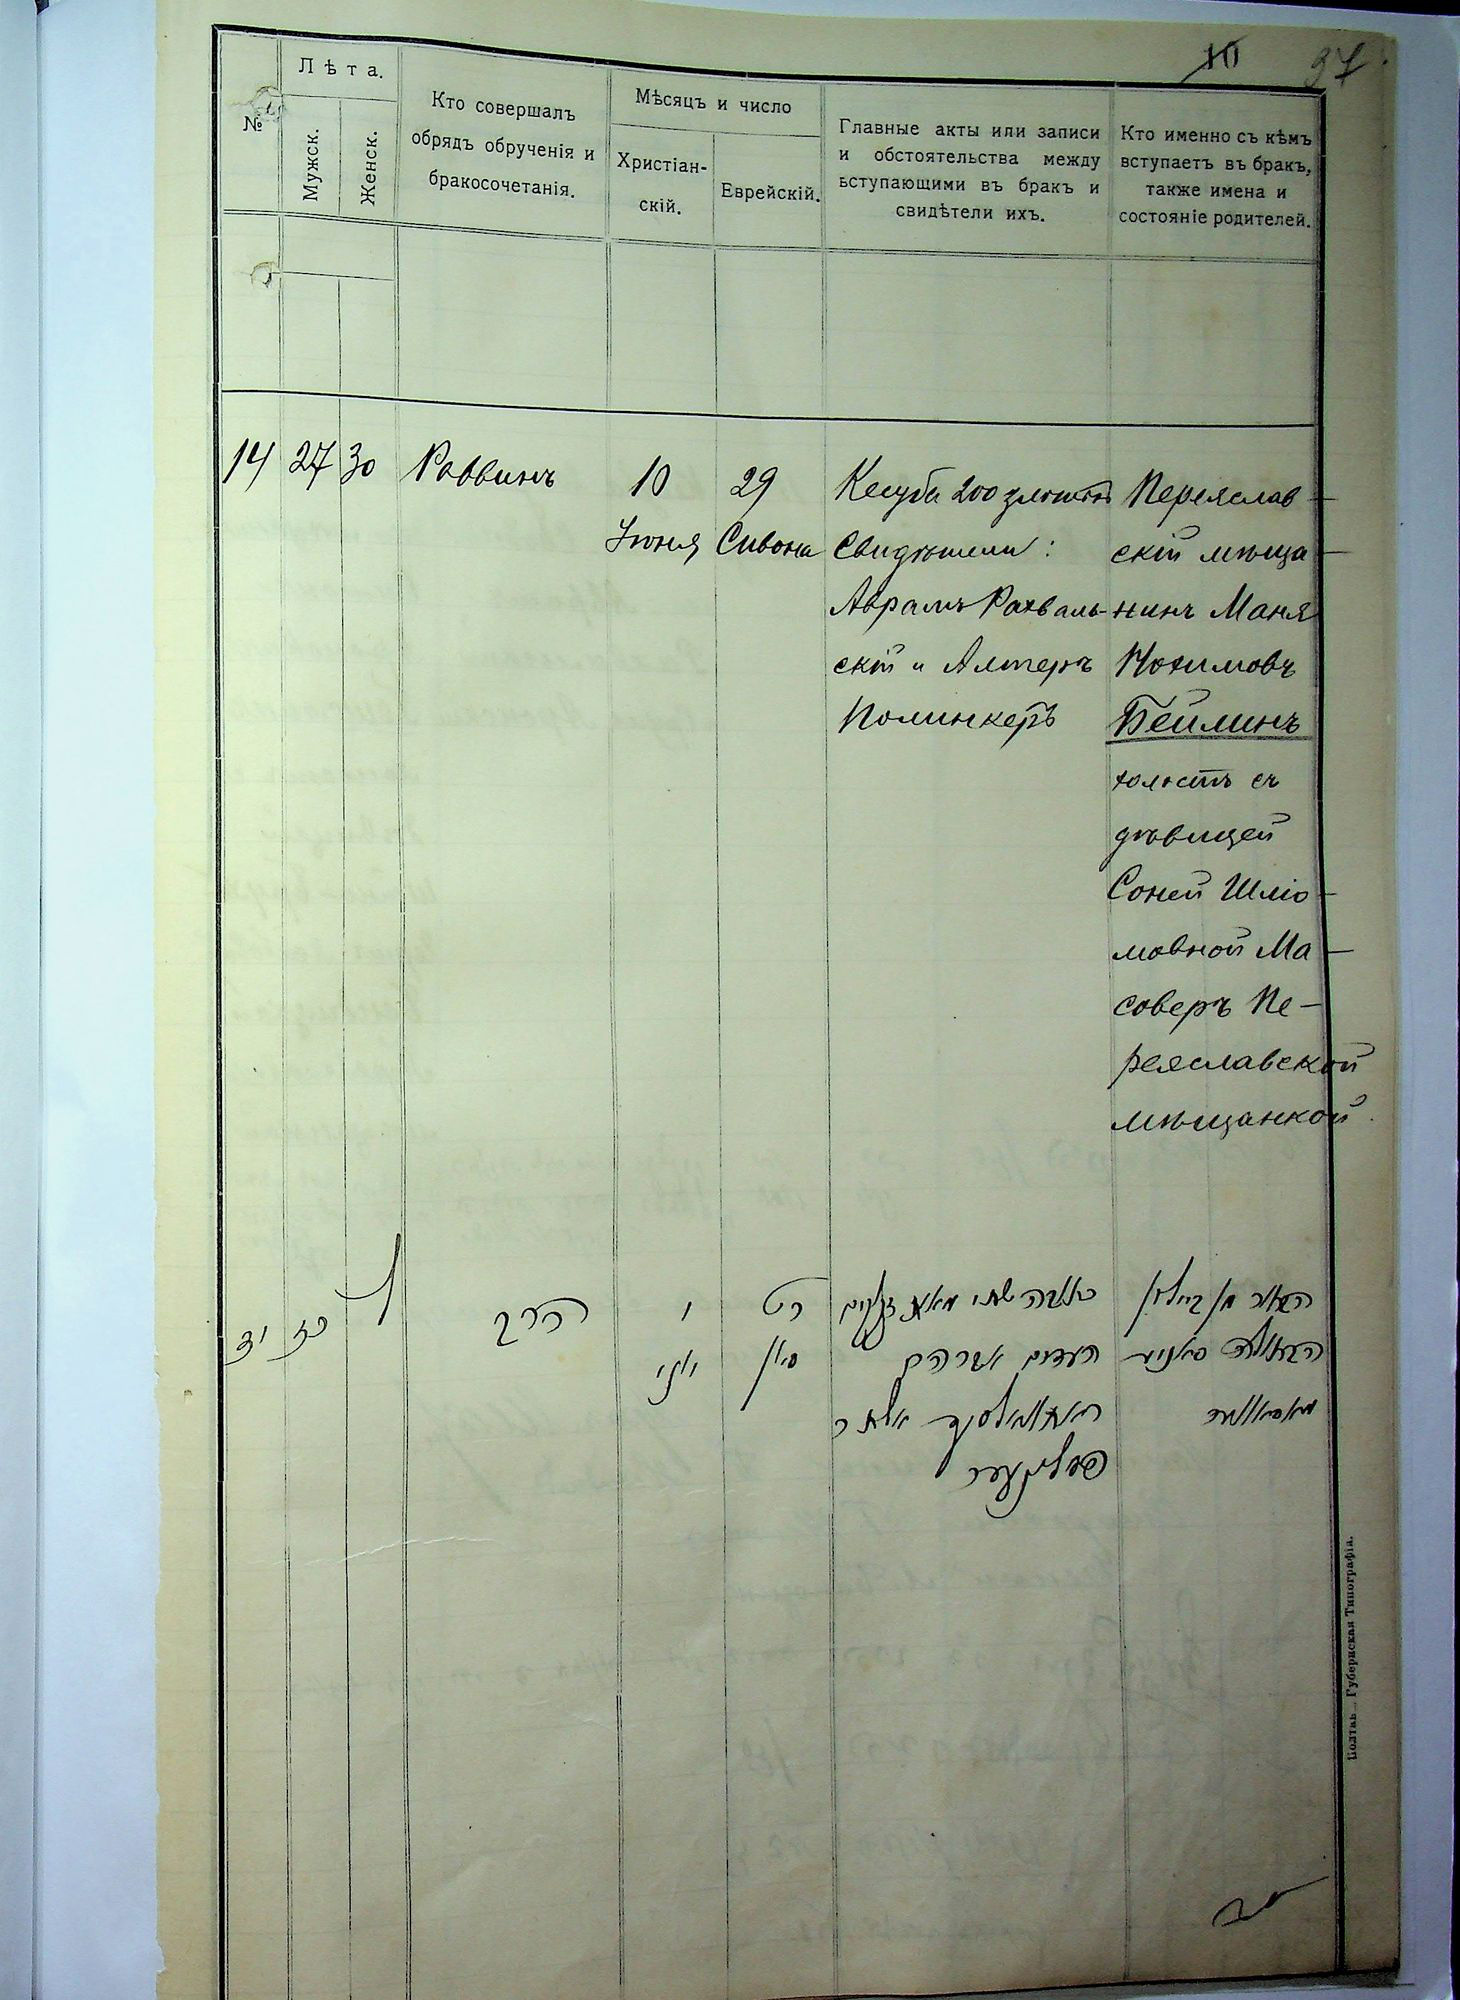 10 37
№
Лѣта.
Мужск.
Женск.
Кто совершалъ
обрядъ обрученія и
бракосочетанія.
Мѣсяцъ и число
Христіан-
скій.
Еврейскій.
Главные акты или записи
и обстоятельства между
вступающими въ бракъ и
свидѣтели ихъ.
Кто именно съ кѣмъ
вступаетъ въ бракъ,
также имена и
состояніе родителей.
14 27 30 Раввинъ
10
Іюня
29
Сивона
Кесуба 200 злотыхъ
Свидѣтели:
Аврамъ Рахваль-
скій и Алтеръ
Полинкеръ
Переяслав-
скій мѣща-
нинъ Маня
Нохимовъ
Бейлинъ
холостъ съ
дѣвицей
Соней Шліо-
мовной Ма-
соверъ Пе-
реяславской
мѣщанкой.
יד כז ל
הרב
י
יוני
כט
סיון
כתובה שתי מאות זהובים
העדים אברהם
הבחור מן ביילין
הבתולה סאניע
Полтава. Губернская Типографія.